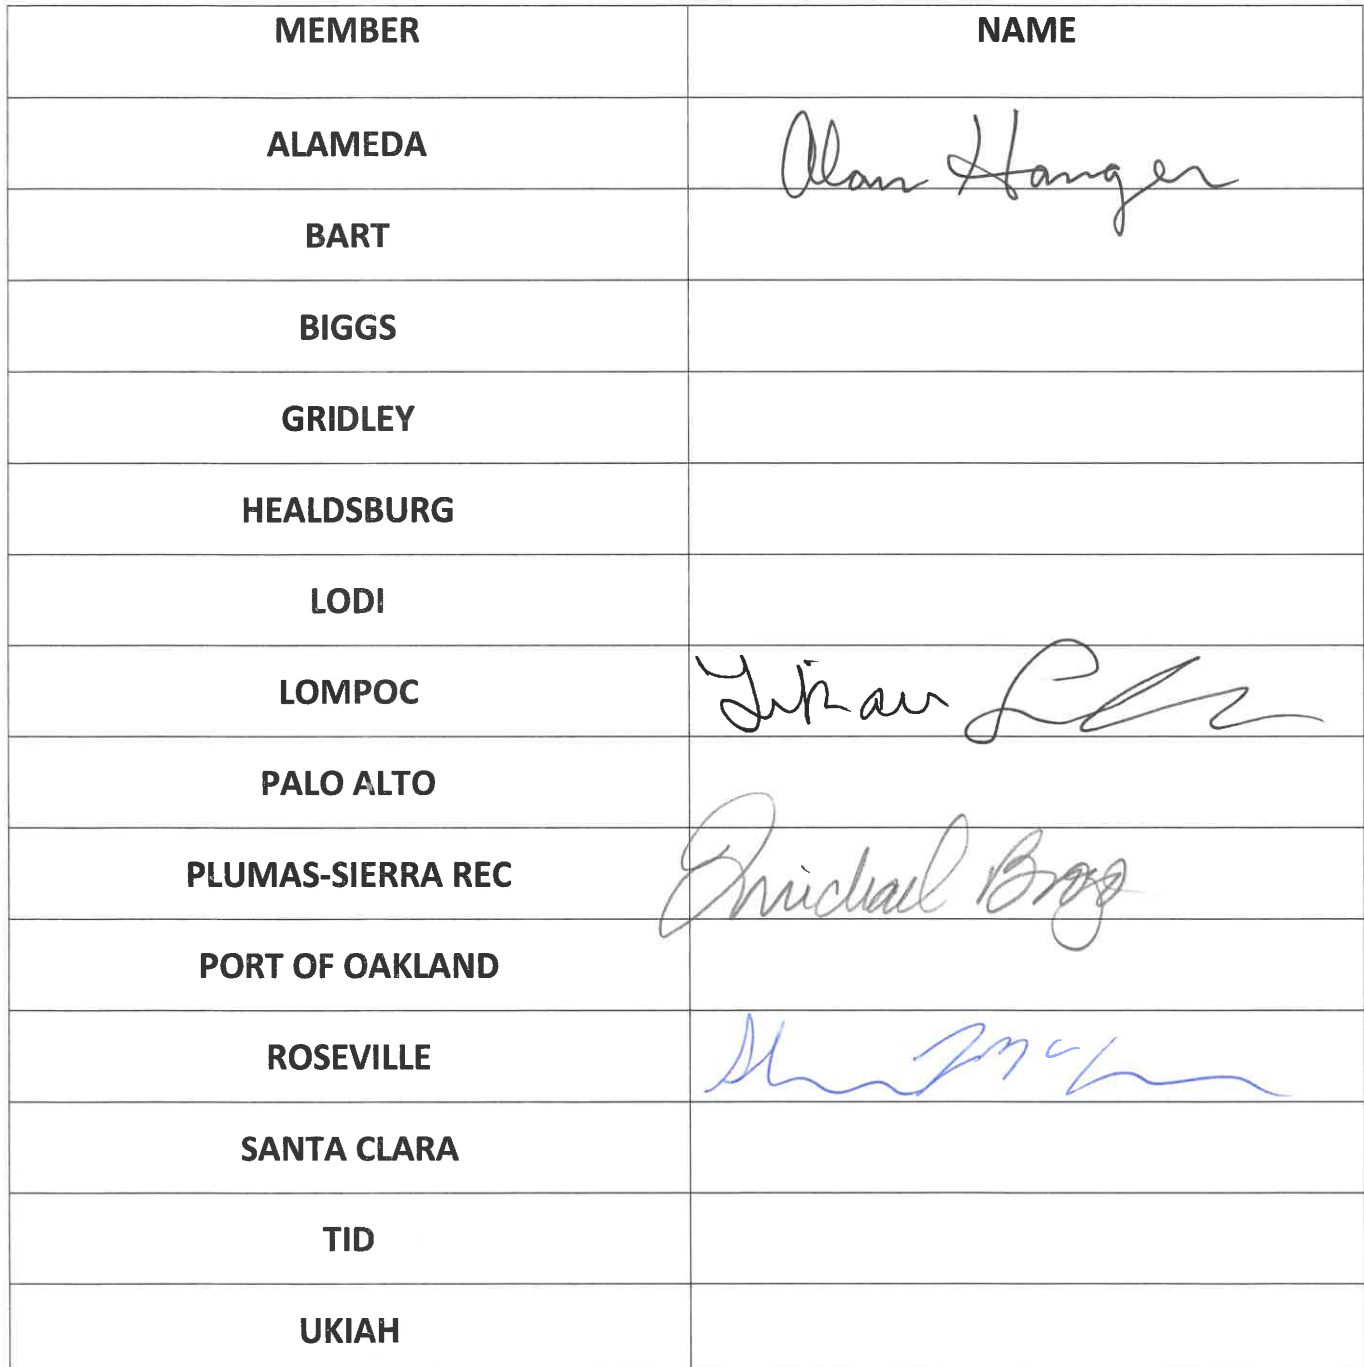 MEMBER NAME
ALAMEDA Alan Hanger
BART
BIGGS
GRIDLEY
HEALDSBURG
LODI
LOMPOC
PALO ALTO
PLUMAS-SIERRA REC Michael
PORT OF OAKLAND
ROSEVILLE
SANTA CLARA
TID
UKIAH